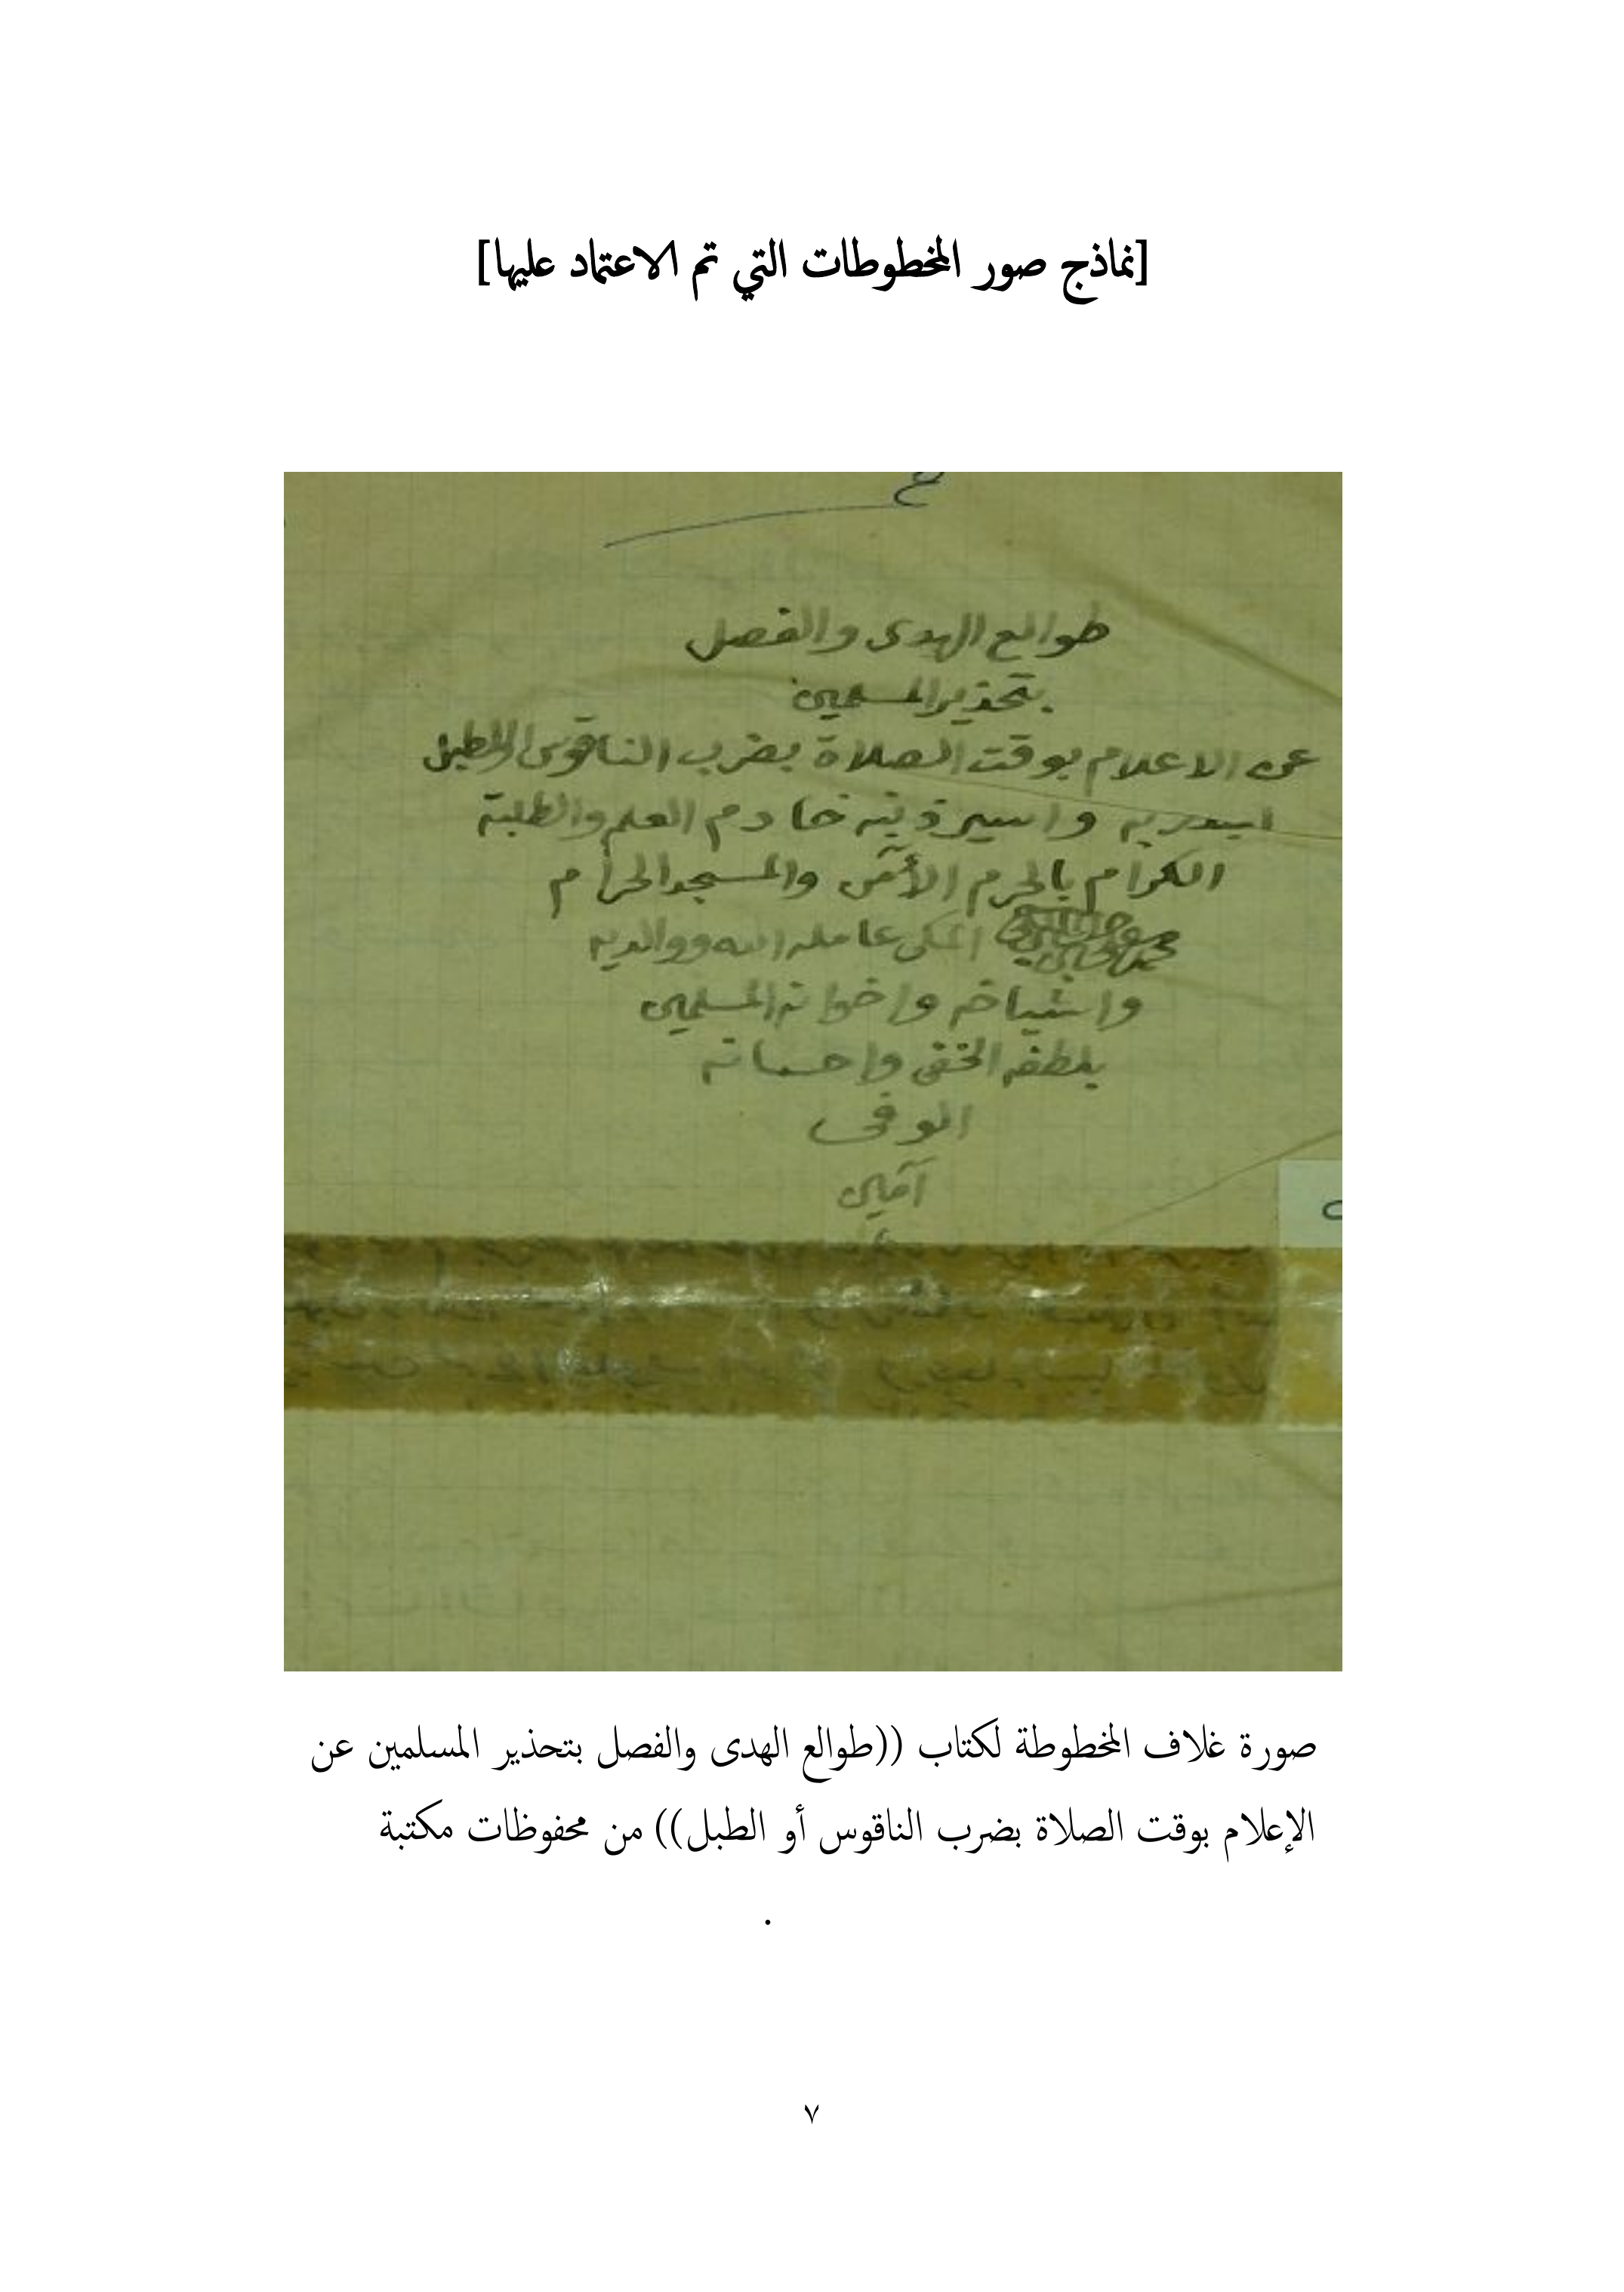 [نماذج صور المخطوطات التي تم الاعتماد عليها]
طوالع الهدى والفصل
بتحذير المسلمين
عن الاعلام بوقت الصلاة بضرب الناقوس او الطبل
واسير ذنبه خادم العلم والطلبة
الكرام بالحرم الآمن والمسجد الحرام
المكى عامله الله ووالديه
واشياخه واخوانه المسلمين
بلطفه الخفى واحسانه
الوفى
آمين
صورة غلاف المخطوطة لكتاب ((طوالع الهدى والفصل بتحذير المسلمين عن
الإعلام بوقت الصلاة بضرب الناقوس أو الطبل)) من محفوظات مكتبة
.
٧